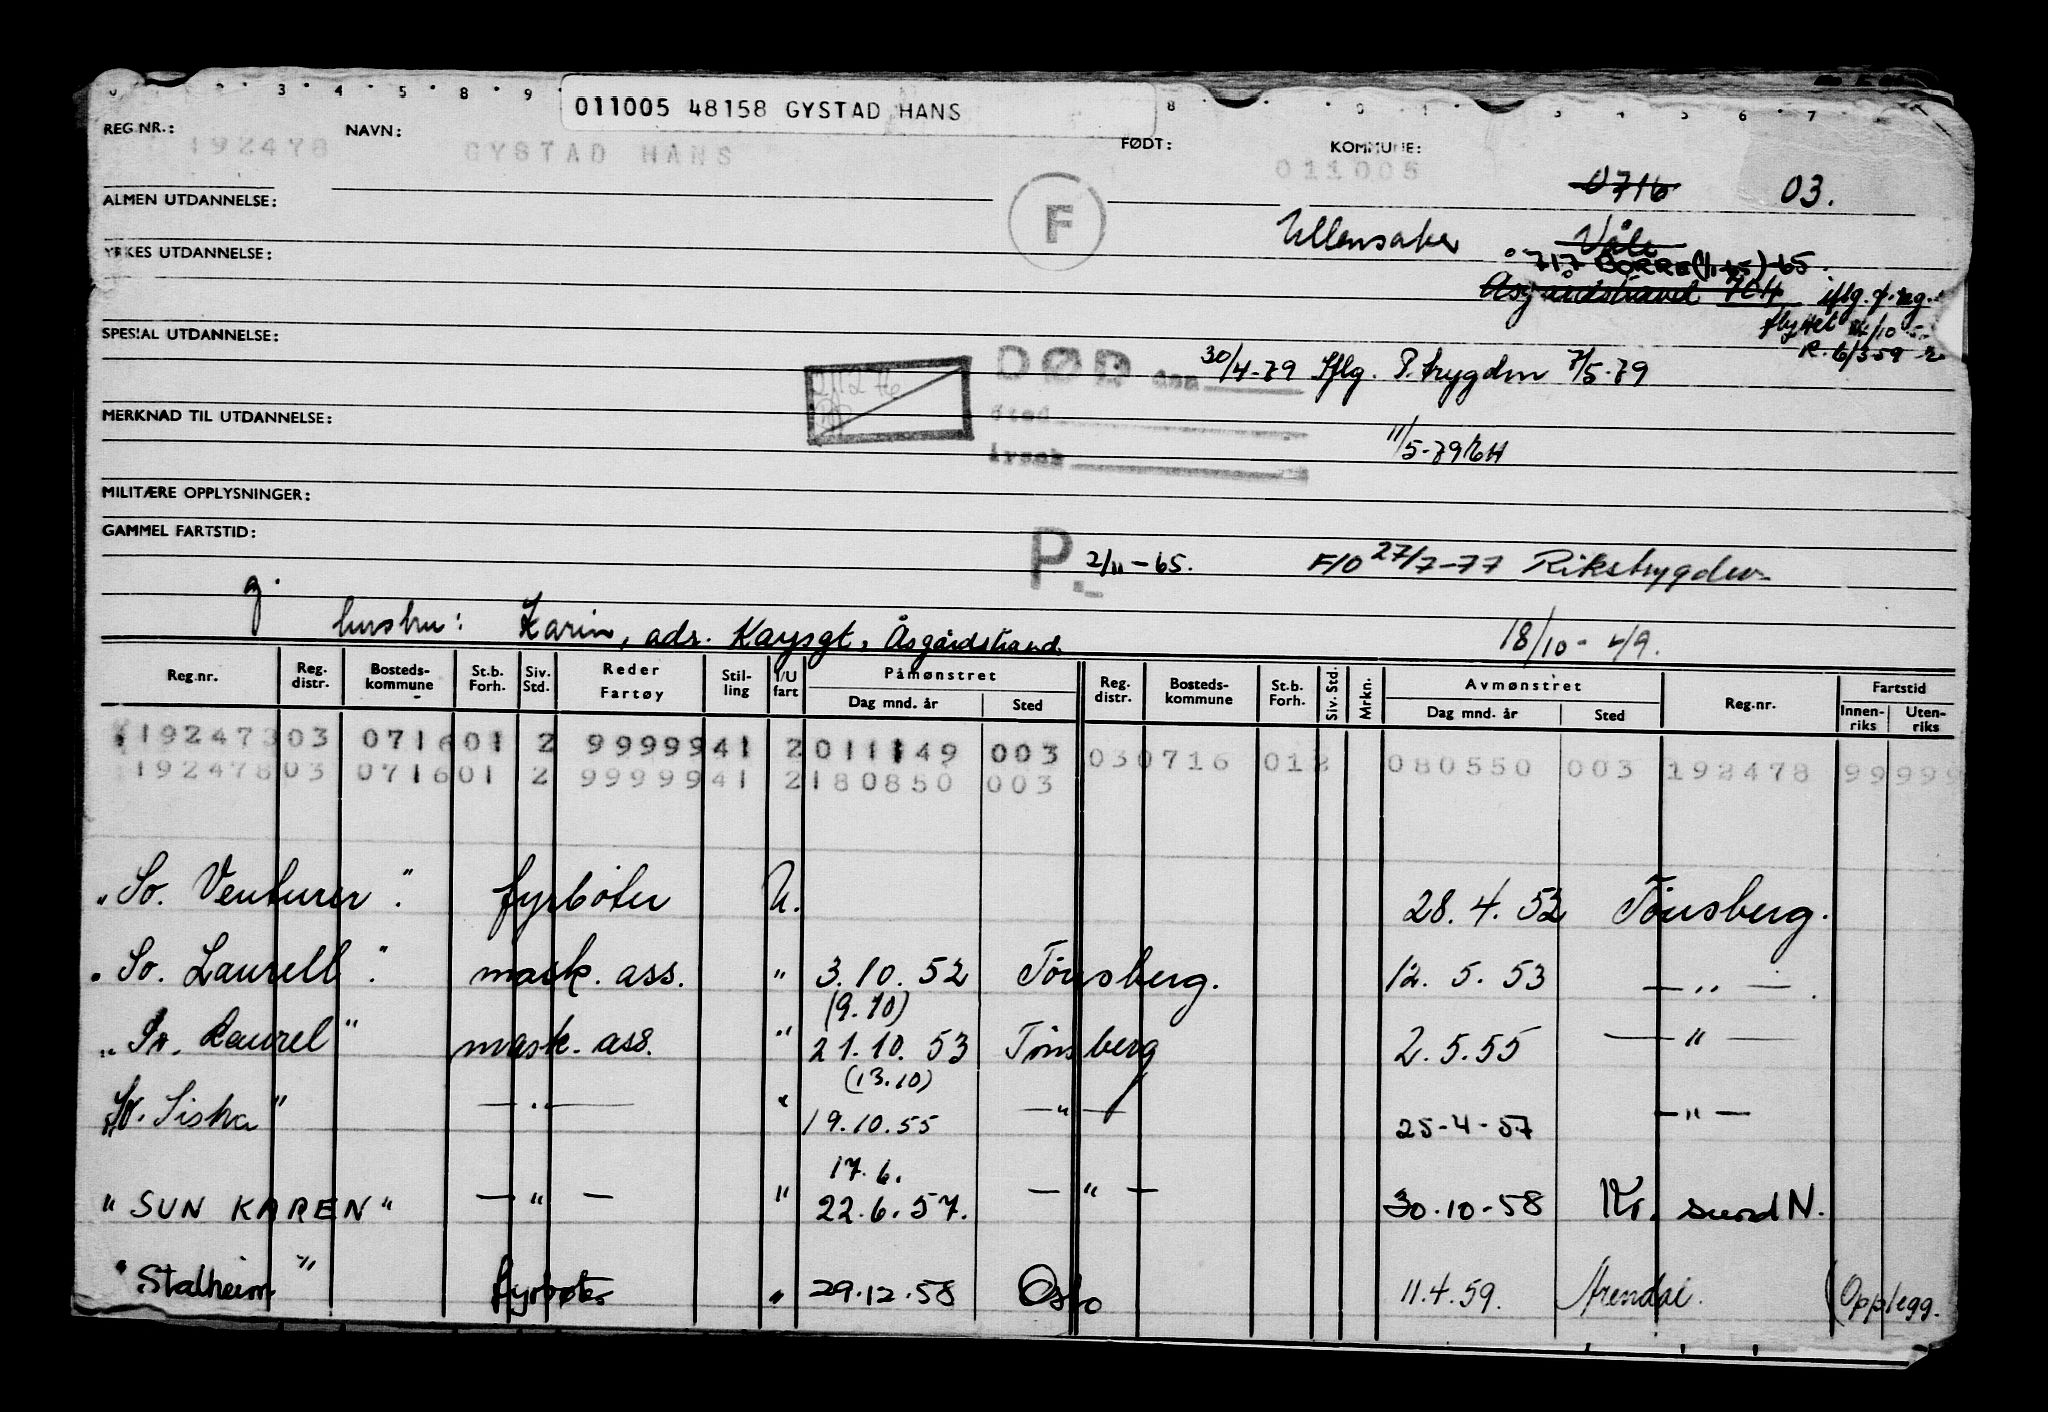 011005 48158 GYSTAD HANS
REG NR.: 192478 NAVN: GYSTAD HANS FØDT: KOMMUNE: 011005
0716 03.
ALMEN UTDANNELSE:
F
Ullensaker Våle
YRKES UTDANNELSE:
717 BORRE (1/1-65) -65.
Åsgårdstrand 704 iflg. f. reg.
flyttet
SPESIAL UTDANNELSE:
DØD den 30/4-79 Iflg. P. trygden 7/5-79
Sted
MERKNAD TIL UTDANNELSE:
Årsak
11/5-79
MILITÆRE OPPLYSNINGER:
GAMMEL FARTSTID:
P. 2/11-65. F/O 27/7-77 Rikstrygden
g.
hustru: Karin, adr. Kaysgt, Åsgårdstrand. 18/10-49.
Reg.nr. Reg. distr. Bosteds-kommune St.b. Forh. Siv. Std. Reder Fartøy Stil-ling I/U fart Påmønstret Dag mnd. år Sted Reg. distr. Bosteds-kommune St.b. Forh. Siv. Std. Mrkn. Avmønstret Dag mnd. år Sted Reg.nr. Fartstid Innen-riks Uten-riks
192478 03 0716 01 2 9999941 2 011149 003 03 0716 012 080550 003 192478 99999
192478 03 0716 01 2 9999941 2 180850 003
"So. Venturer". fyrbøter U. 28.4.52 Tönsberg.
"So. Laurell". mask. ass. " 3.10.52 Tönsberg. 12.5.53 — " —.
(9.10)
"So. Laurel" mask. ass. " 21.10.53 Tönsberg 2.5.55 — " —
(13.10)
So. Siska" — " — " 19.10.55 — " — 25-4-57 — " —
17.6.
"SUN KAREN" — " — " 22.6.57. — " — 30.10-58 Kr. sund N.
"Stalheim" fyrbøter " 29.12.58 Oslo 11.4.59. Arendal. (Opplegg.